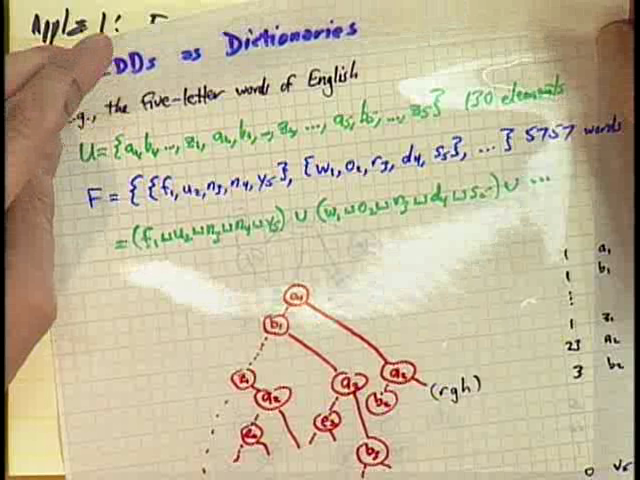 Appl 1:
DDs as Dictionaries
e.g., the five-letter words of English
U = {a₁, b₁, ..., z₁, a₂, b₂, ..., z₂, ..., a₅, b₅, ..., z₅} 130 elements
F = { {f₁, u₂, n₃, n₄, y₅}, {w₁, o₂, r₃, d₄, s₅}, ... } 5757 words
= (f₁ ⊔ u₂ ⊔ n₃ ⊔ n₄ ⊔ y₅) ∪ (w₁ ⊔ o₂ ⊔ r₃ ⊔ d₄ ⊔ s₅) ∪ ...
1 a₁
1 b₁
⋮
1 z₁
23 a₂
3 b₂
0 v₅
a₁
b₁
z₁ a₂ a₂
a₂ b₂ (rgh)
e₂ e₂
b₃